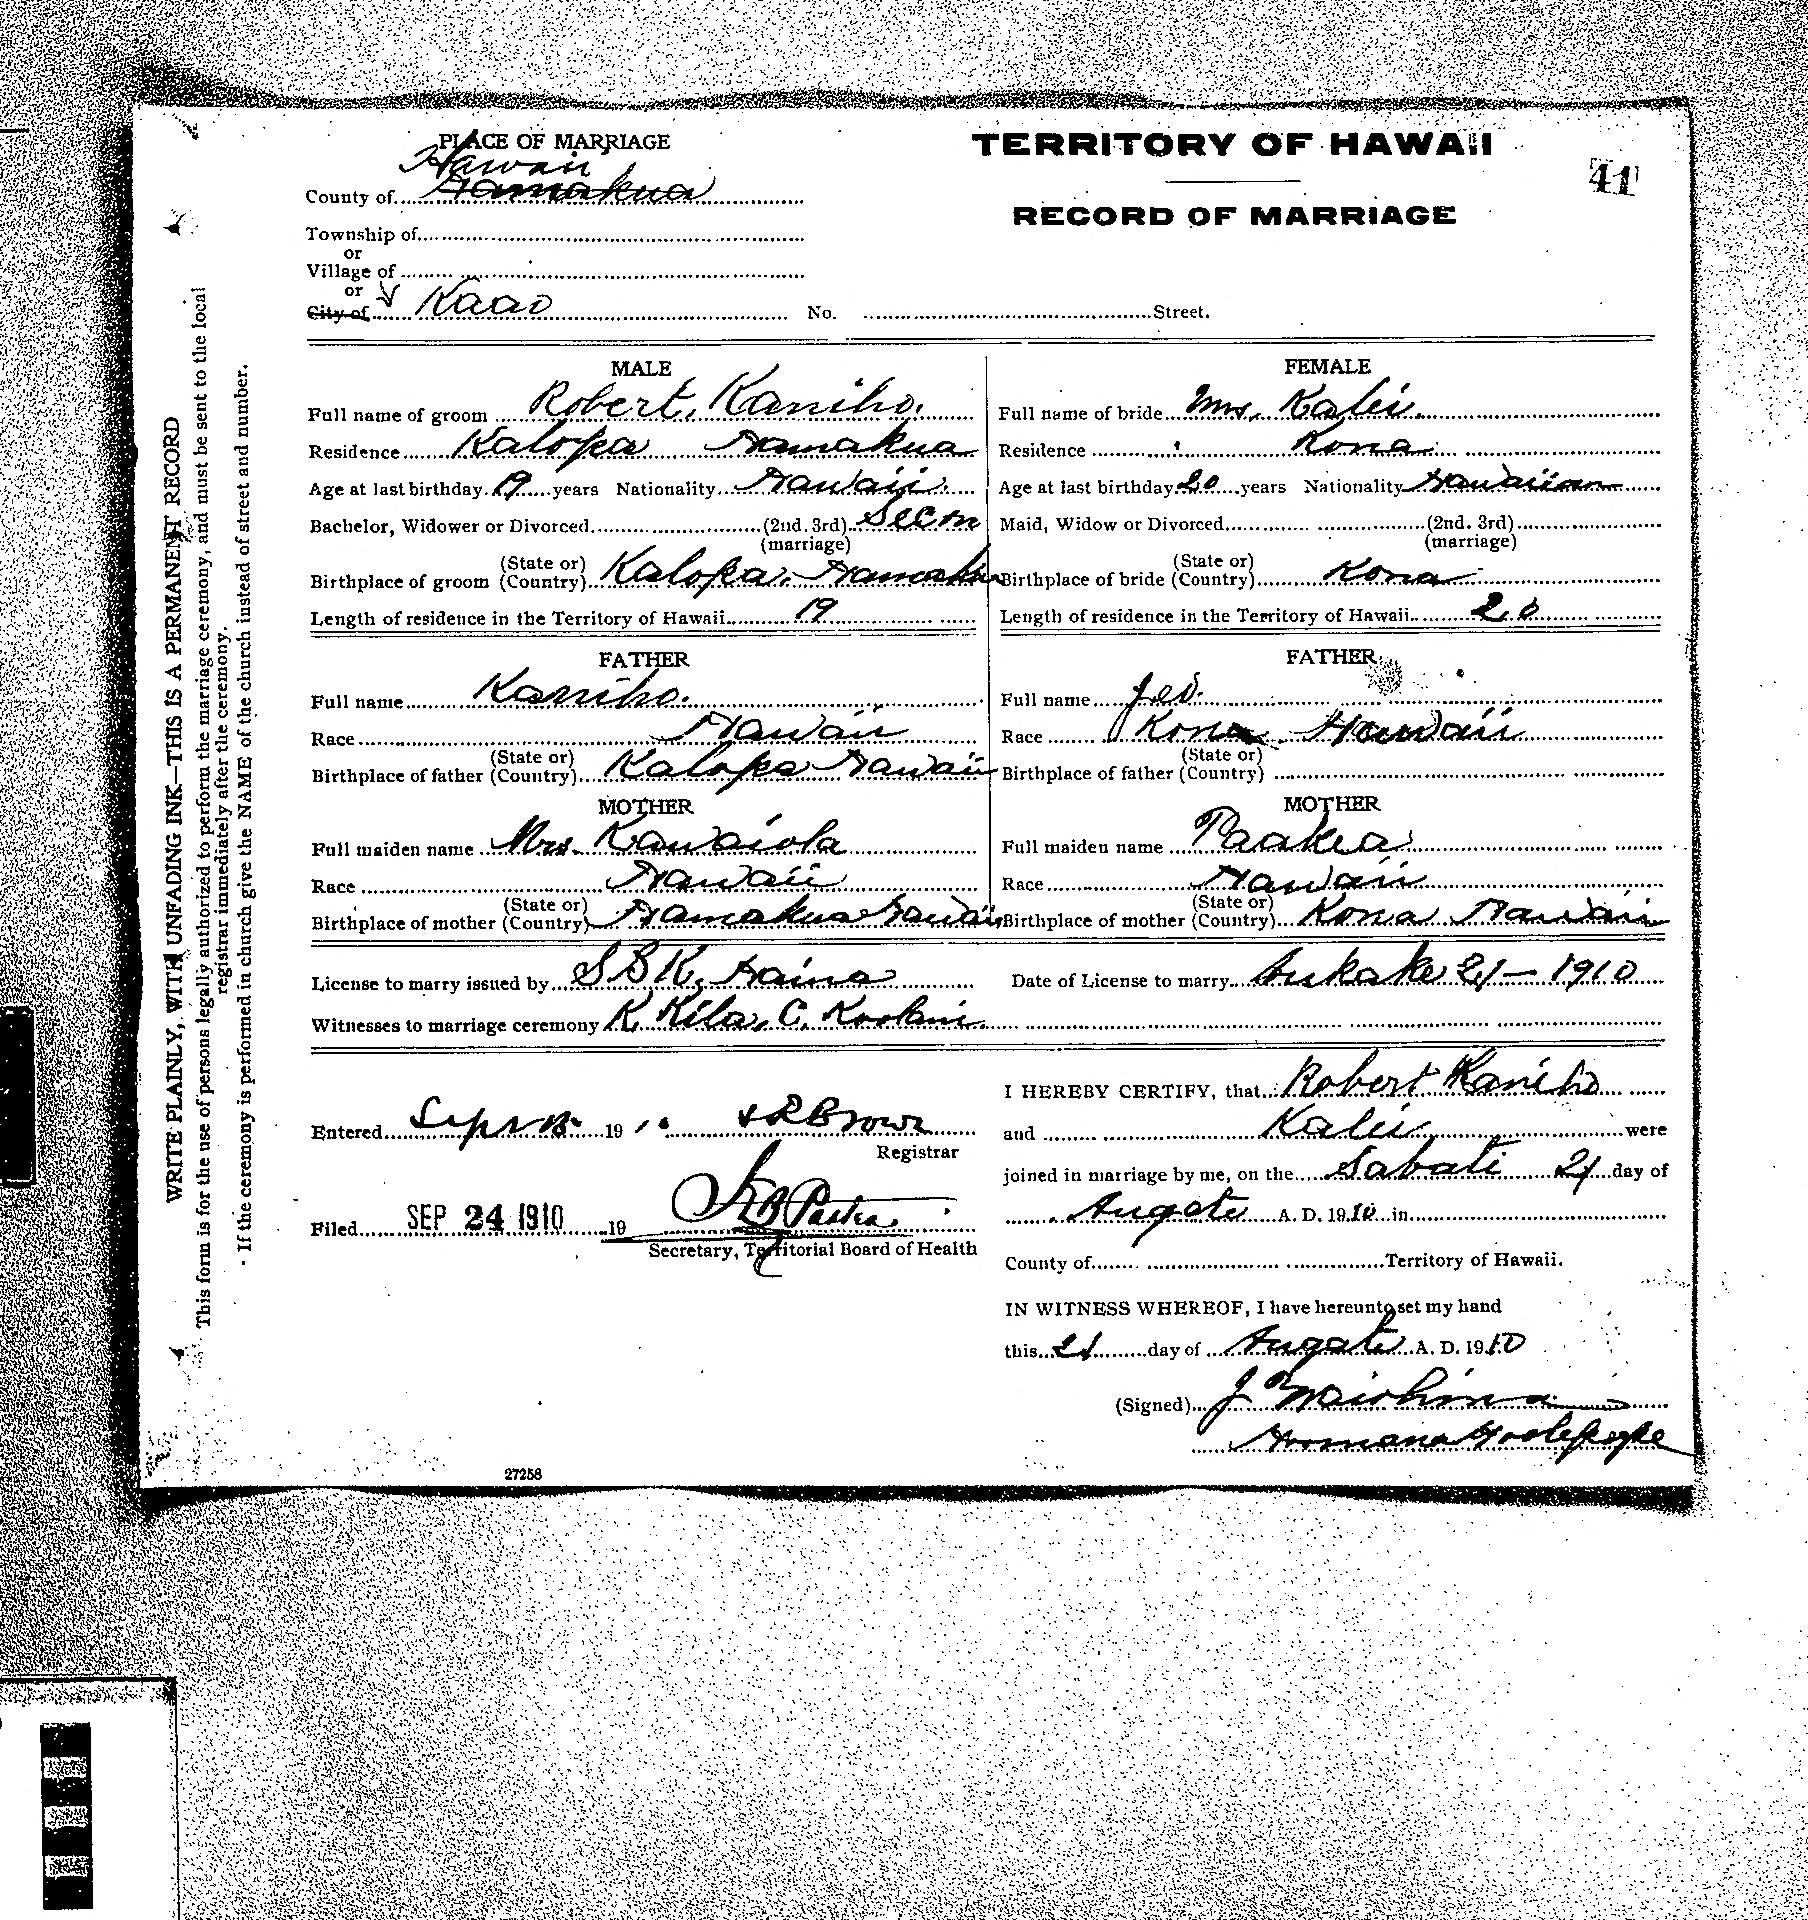 PLACE OF MARRIAGE
TERRITORY OF HAWAII
41
RECORD OF MARRIAGE
Hawaii
County of Hamakua
Township of
or
Village of
or
City of Kaao No. Street.
MALE
Full name of groom Robert. Kaniho.
Residence Kalopa Hamakua
Age at last birthday 19 years Nationality Hawaii.
Bachelor, Widower or Divorced (2nd. 3rd)
(marriage)
(State or)
Birthplace of groom (Country) Kalopa. Hamakua
Length of residence in the Territory of Hawaii 19
FEMALE
Full name of bride Mrs. Kalei.
Residence Kona
Age at last birthday 20 years Nationality Hawaiian
Maid, Widow or Divorced (2nd. 3rd)
(marriage)
(State or)
Birthplace of bride (Country) Kona
Length of residence in the Territory of Hawaii 20
FATHER
Full name Kaniho.
Race Hawaii
(State or)
Birthplace of father (Country) Kalopa Hawaii
MOTHER
Full maiden name Mrs. Kawaiola
Race Hawaii
(State or)
Birthplace of mother (Country) Hamakua Hawaii
FATHER
Full name
Race Kona Hawaii
(State or)
Birthplace of father (Country)
MOTHER
Full maiden name Paakea
Race Hawaii
(State or)
Birthplace of mother (Country) Kona Hawaii
License to marry issued by S B K. Haina
Date of License to marry Aukake 21 — 1910
Witnesses to marriage ceremony K Kila, C. Koolani.
Entered 19 10 Brown
Registrar
Filed SEP 24 1910 19
Secretary, Territorial Board of Health
I HEREBY CERTIFY, that Robert Kaniho
and Kalei were
joined in marriage by me, on the Sabati 21 day of
Augate A. D. 1910 in
County of Territory of Hawaii.
IN WITNESS WHEREOF, I have hereunto set my hand
this 21 day of Augate A. D. 1910
(Signed) J
27258
WRITE PLAINLY, WITH UNFADING INK—THIS IS A PERMANENT RECORD
This form is for the use of persons legally authorized to perform the marriage ceremony, and must be sent to the local
registrar immediately after the ceremony.
If the ceremony is performed in church give the NAME of the church instead of street and number.